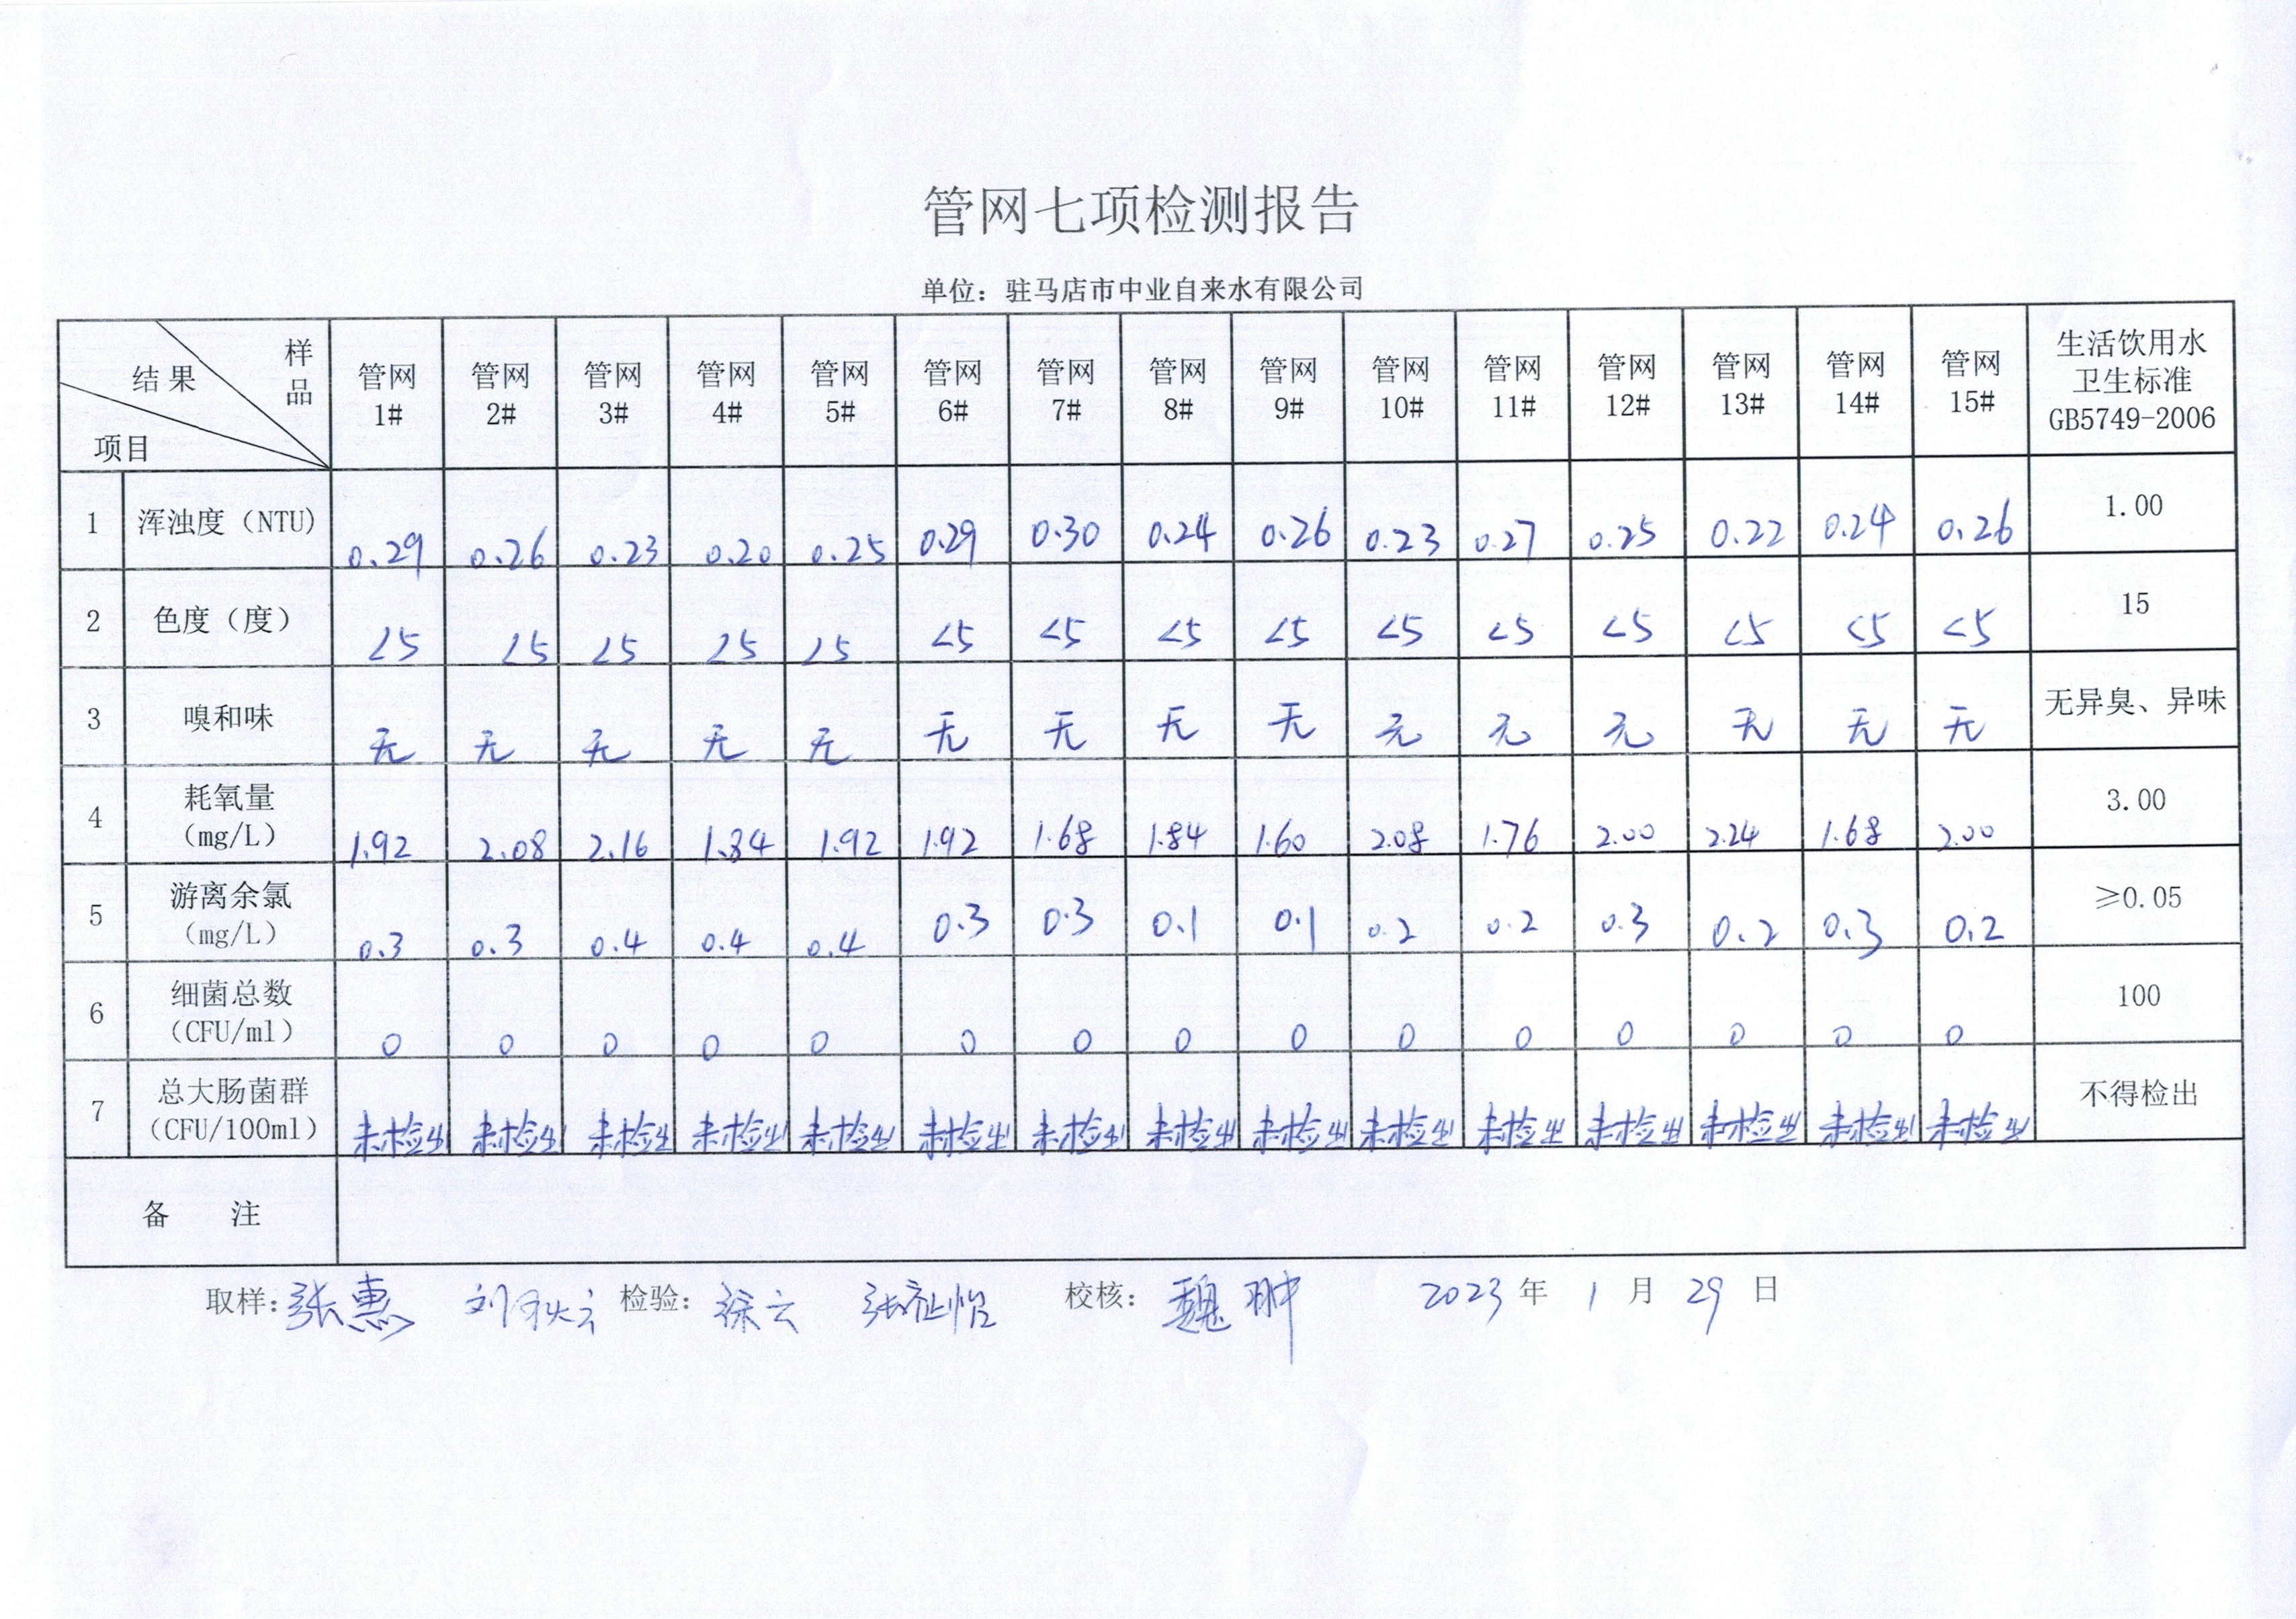 管网七项检测报告
单位：驻马店市中业自来水有限公司
结果 样品 项目 管网1# 管网2# 管网3# 管网4# 管网5# 管网6# 管网7# 管网8# 管网9# 管网10# 管网11# 管网12# 管网13# 管网14# 管网15# 生活饮用水卫生标准GB5749-2006
1 浑浊度（NTU） 0.29 0.26 0.23 0.20 0.25 0.29 0.30 0.24 0.26 0.23 0.27 0.25 0.22 0.24 0.26 1.00
2 色度（度） <5 <5 <5 <5 <5 <5 <5 <5 <5 <5 <5 <5 <5 <5 <5 15
3 嗅和味 无 无 无 无 无 无 无 无 无 无 无 无 无 无 无 无异臭、异味
4 耗氧量（mg/L） 1.92 2.08 2.16 1.84 1.92 1.92 1.68 1.84 1.60 2.08 1.76 2.00 2.24 1.68 2.00 3.00
5 游离余氯（mg/L） 0.3 0.3 0.4 0.4 0.4 0.3 0.3 0.1 0.1 0.2 0.2 0.3 0.2 0.3 0.2 ≥0.05
6 细菌总数（CFU/ml） 0 0 0 0 0 0 0 0 0 0 0 0 0 0 0 100
7 总大肠菌群（CFU/100ml） 未检出 未检出 未检出 未检出 未检出 未检出 未检出 未检出 未检出 未检出 未检出 未检出 未检出 未检出 未检出 不得检出
备 注
取样：张惠 刘秋云 检验：徐云 张 怡 校核：魏翀 2023 年 1 月 29 日